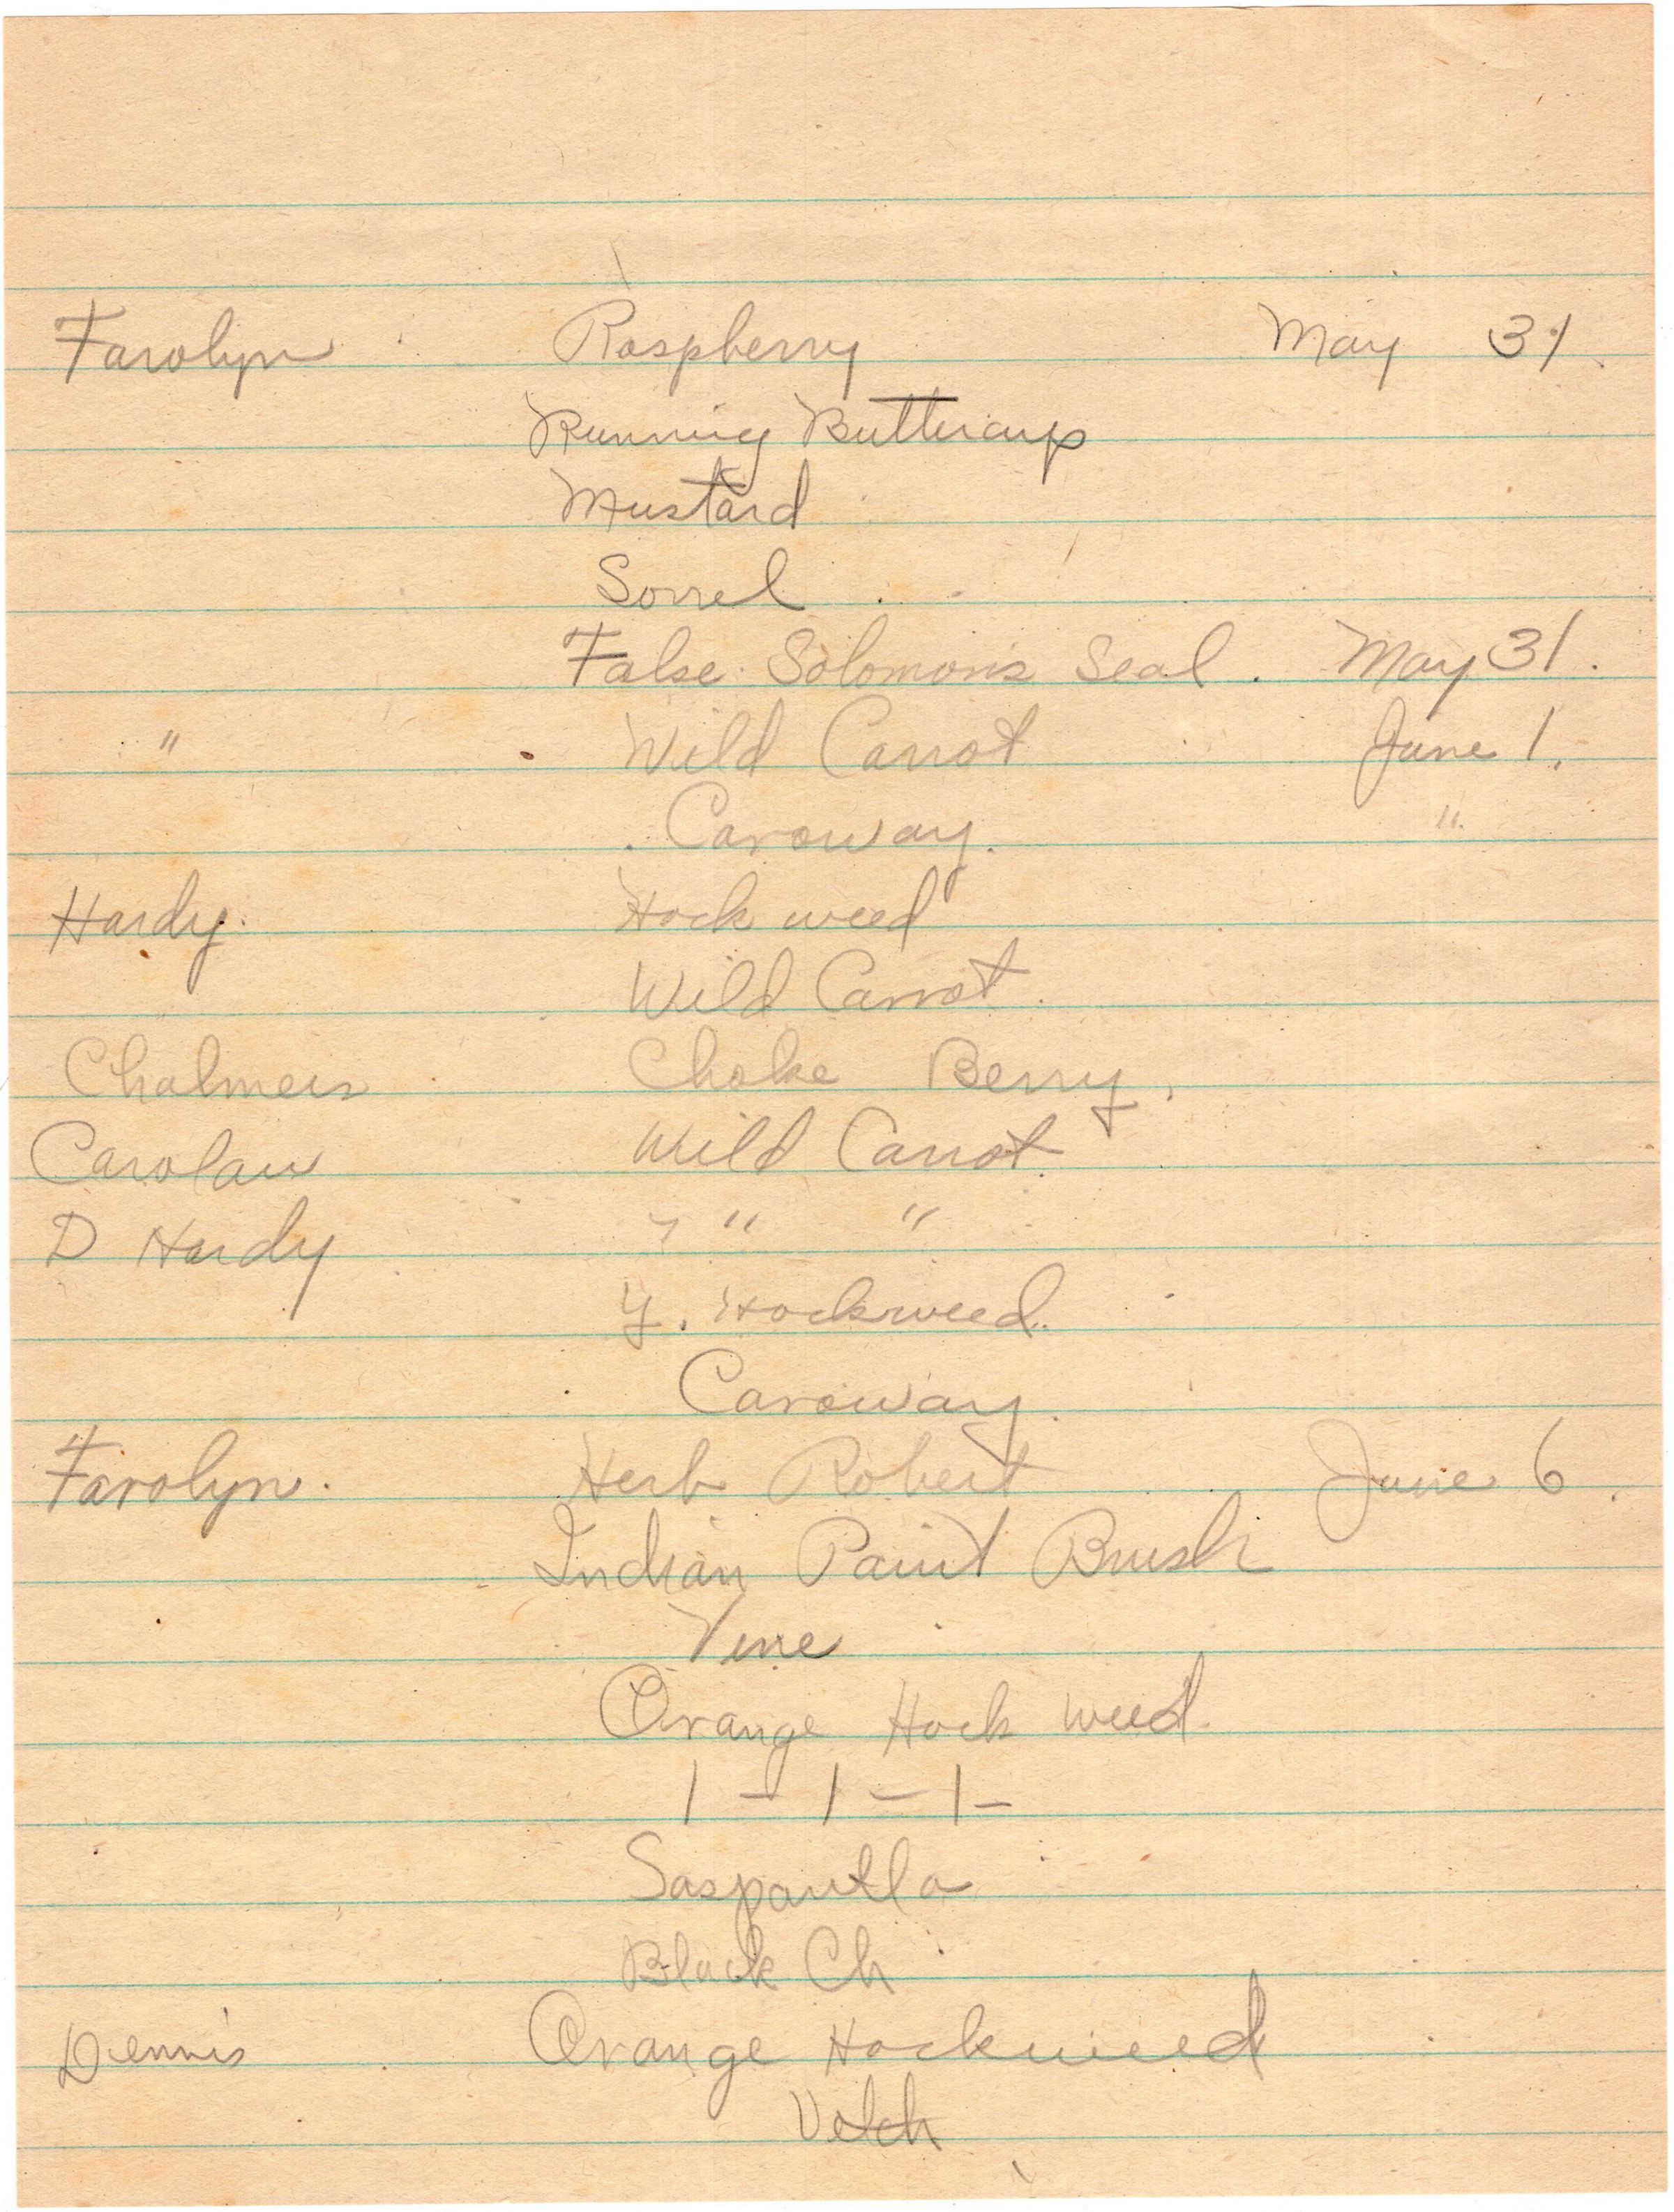 Farolyn Raspberry May 31.
Running Buttercup
Mustard
Sorrel
False Solomon's Seal. May 31.
" Wild Carrot June 1.
Caroway. "
Hardy. Hock weed
Wild Carrot.
Chalmers Choke Berry.
Carolan Wild Carrot.
D Hardy " "
Y. Hockweed.
Caroway.
Farolyn. Herb Robert June 6.
Indian Paint Brush
Vine
Orange Hock weed.
1 - 1 - 1 -
Black Ch
Dennis Orange Hockweed
Vetch